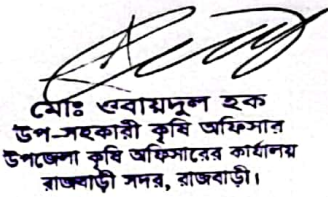 মোঃ ওবায়দুল হক
উপ-সহকারী কৃষি অফিসার
উপজেলা কৃষি অফিসারের কার্যালয়
রাজবাড়ী সদর, রাজবাড়ী।